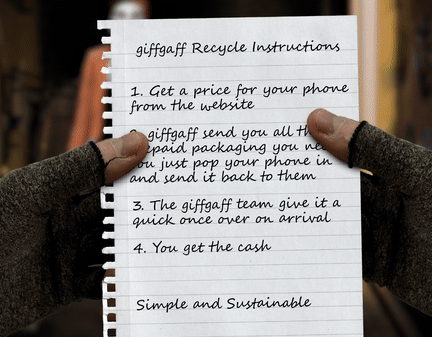 giffgaff Recycle Instructions
1. Get a price for your phone
from the website
giffgaff send you all
packaging you
you just pop your phone in
and send it back to them
3. The giffgaff team give it a
quick once over on arrival
4. You get the cash
Simple and Sustainable